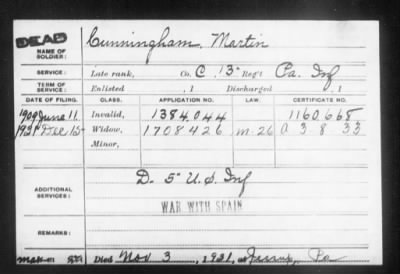 DEAD
Cunningham, Martin
NAME OF SOLDIER:
SERVICE: Late rank, Co. C, 13" Reg't Pa. Inf
TERM OF SERVICE: Enlisted , 1 Discharged , 1
DATE OF FILING. CLASS. APPLICATION NO. LAW. CERTIFICATE NO.
1909 June 11. Invalid, 1384,044 1160,668
1931 Dec 15 Widow, 1708426 m-26 a 3 8 33
Minor,
ADDITIONAL SERVICES: D. 5" U.S. Inf
WAR WITH SPAIN
REMARKS:
Died Nov 3, 1931, at Jessup, Pa